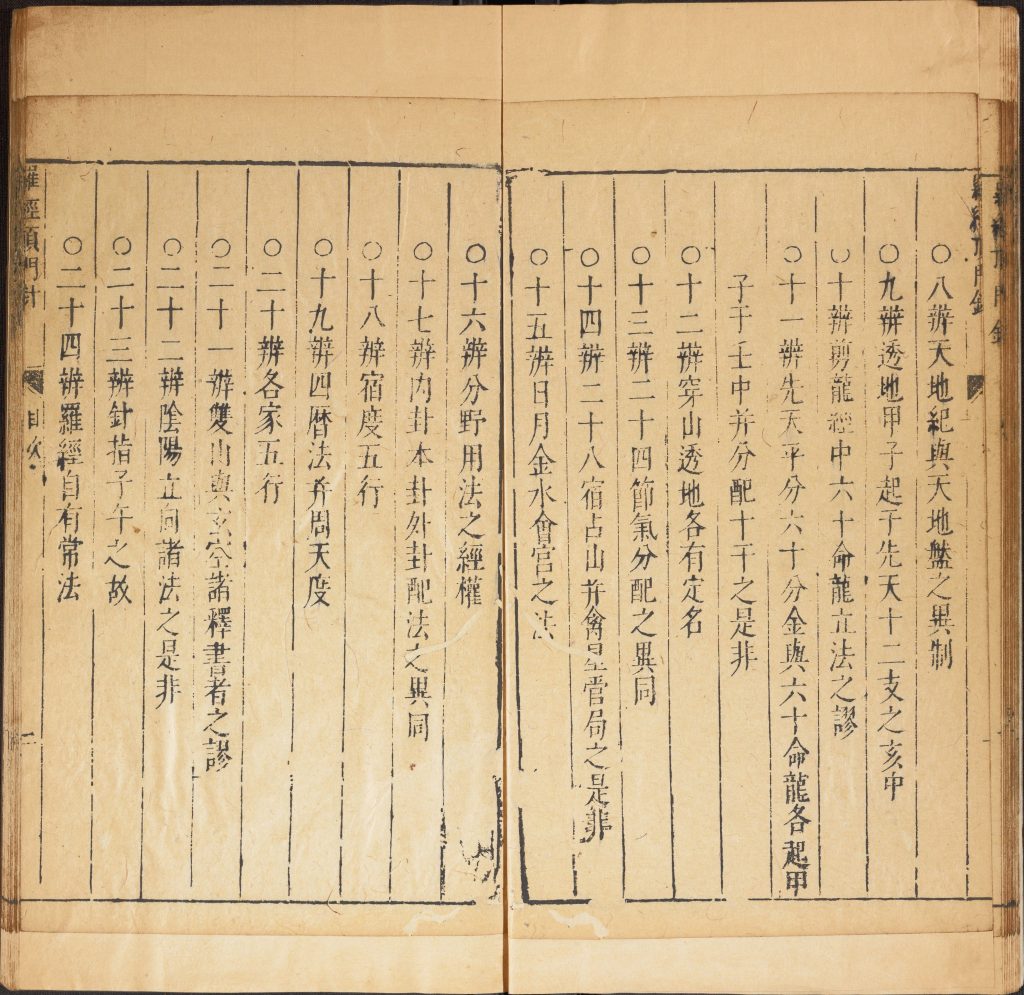 ○八辨天地紀與天地盤之異制
○九辨透地甲子起于先天十二支之亥中
○十辨剪龍經中六十命龍立法之謬
○十一辨先天平分六十分金與六十命龍各起甲
子于壬中并分配十干之是非
○十二辨穿山透地各有定名
○十三辨二十四節氣分配之異同
○十四辨二十八宿占山并禽星管局之是非
○十五辨日月金水會宮之法
○十六辨分野用法之經權
○十七辨內卦本卦外卦配法之異同
○十八辨宿度五行
○十九辨四曆法并周天度
○二十辨各家五行
○二十一辨雙山與玄空諸釋書者之謬
○二十二辨陰陽立向諸法之是非
○二十三辨針指子午之故
○二十四辨羅經自有常法
羅經頂門針
目次
二